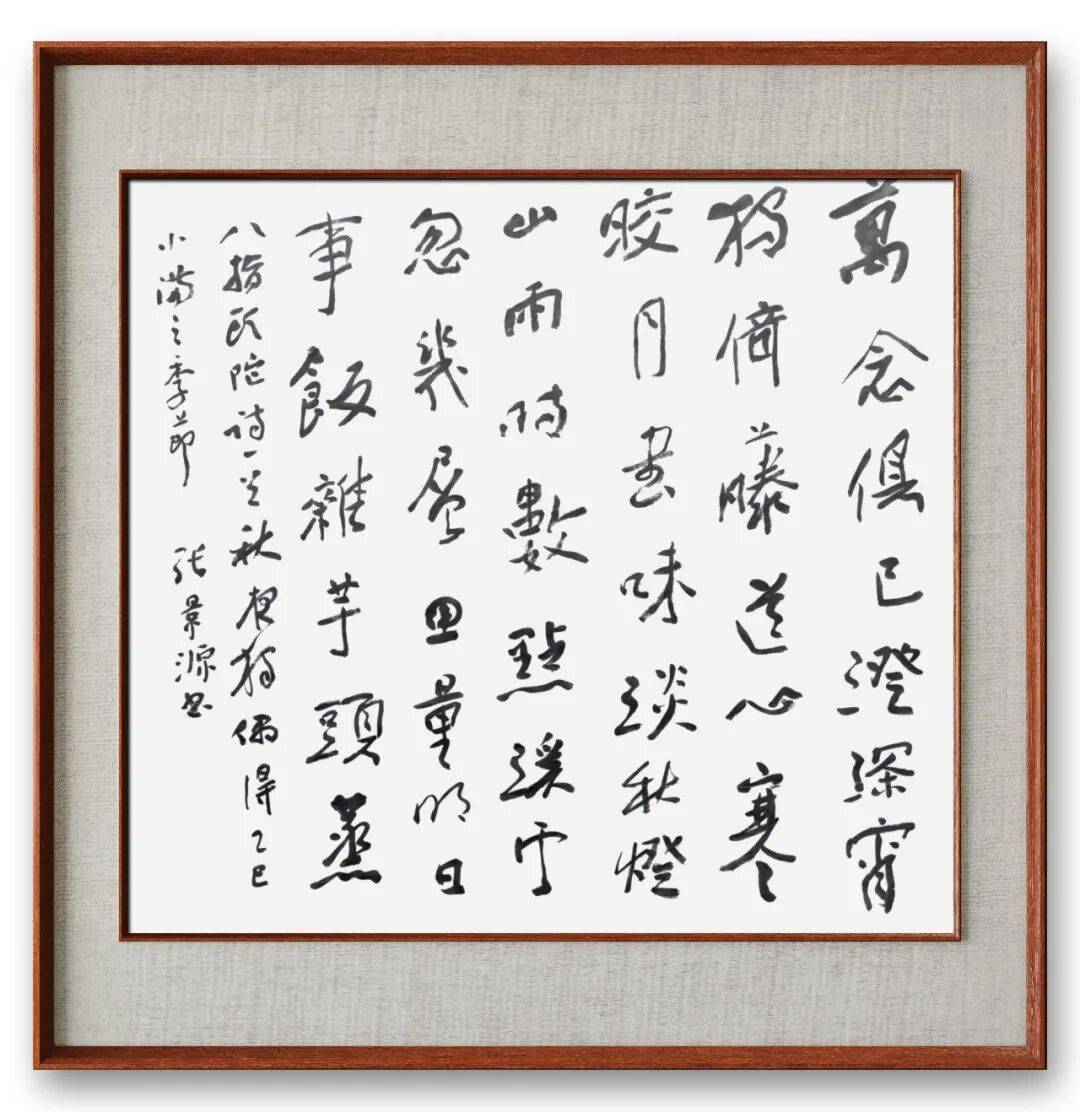 萬念俱已澄深宵
獨倚藤道心寒
晈月書味淡秋燈
山雨時數點溪雲
忽幾層思量明日
事飯雜芋頭蒸
八指頭陀詩一首秋夜獨偶得乙巳
小滿之季節 張景源书